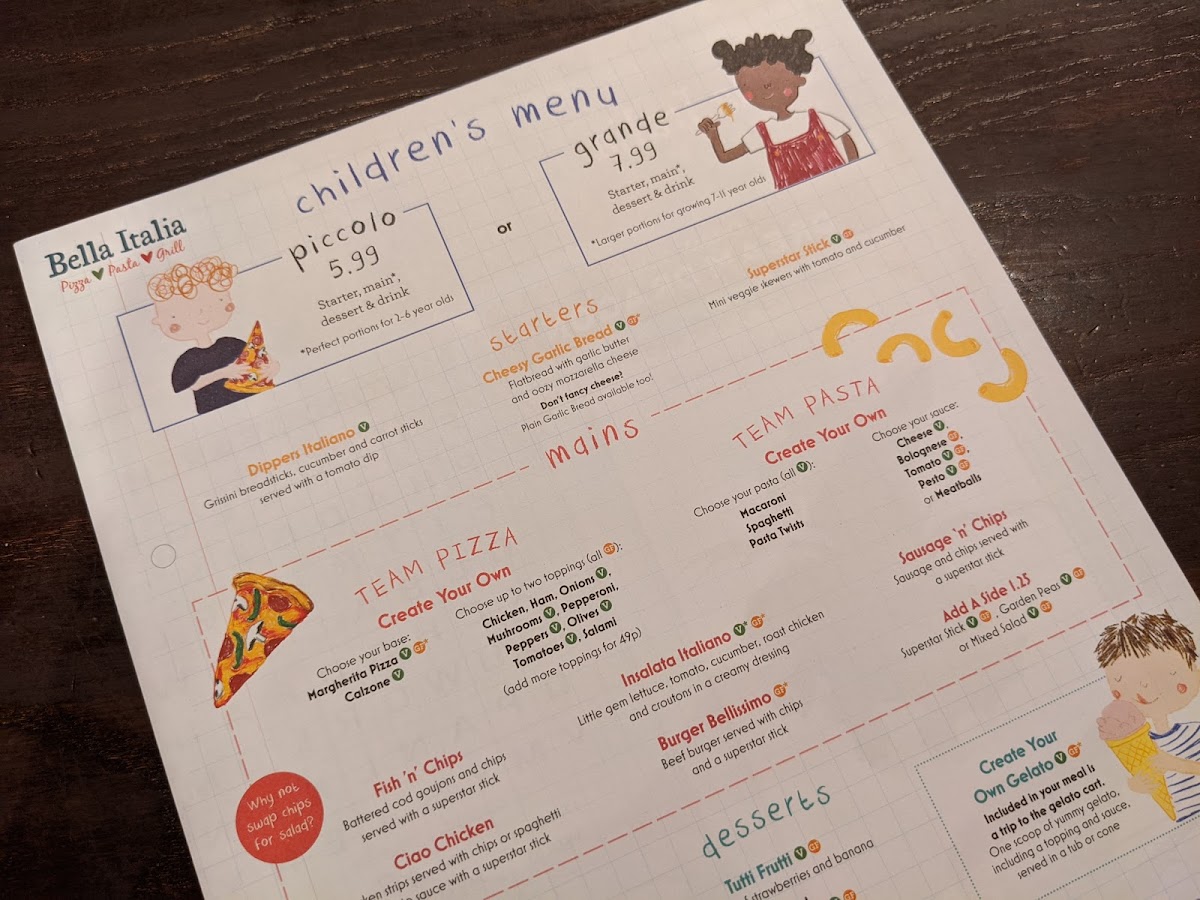 children's menu
Bella Italia
Pizza Pasta Grill
piccolo
5.99
Starter, main*,
dessert & drink
*Perfect portions for 2-6 year olds
or
grande
7.99
Starter, main*,
dessert & drink
*Larger portions for growing 7-11 year olds
starters
Dippers Italiano V
Grissini breadsticks, cucumber and carrot sticks
served with a tomato dip
Cheesy Garlic Bread V GF*
Flatbread with garlic butter
and oozy mozzarella cheese
Don't fancy cheese?
Plain Garlic Bread available too!
Superstar Stick V GF
Mini veggie skewers with tomato and cucumber
mains
TEAM PIZZA
Create Your Own
Choose your base:
Margherita Pizza V GF*
Calzone V
Choose up to two toppings (all GF):
Chicken, Ham, Onions V,
Mushrooms V, Pepperoni,
Peppers V, Olives V
Tomatoes V, Salami
(add more toppings for 49p)
TEAM PASTA
Create Your Own
Choose your pasta (all V):
Macaroni
Spaghetti
Pasta Twists
Choose your sauce:
Cheese V,
Bolognese GF,
Tomato V GF,
Pesto V GF
or Meatballs
Fish 'n' Chips
Battered cod goujons and chips
served with a superstar stick
Ciao Chicken
strips served with chips or spaghetti
sauce with a superstar stick
Insalata Italiano V* GF*
Little gem lettuce, tomato, cucumber, roast chicken
and croutons in a creamy dressing
Burger Bellissimo GF*
Beef burger served with chips
and a superstar stick
Sausage 'n' Chips
Sausage and chips served with
a superstar stick
Add A Side 1.25
Superstar Stick V GF, Garden Peas V GF
or Mixed Salad V GF
Why not
swap chips
for salad?
desserts
Tutti Frutti V GF
strawberries and banana
GF
Create Your
Own Gelato V GF*
Included in your meal is
a trip to the gelato cart.
One scoop of yummy gelato,
including a topping and sauce,
served in a tub or cone